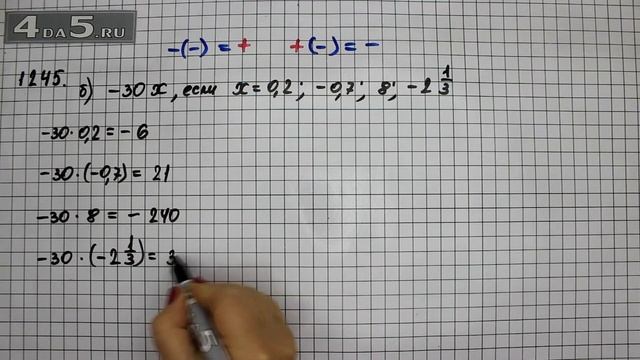 4DA5.RU
-(-) = + +(-) = -
1245. б) -30x, если x = 0,2; -0,7; 8; -2 1/3
-30 · 0,2 = -6
-30 · (-0,7) = 21
-30 · 8 = - 240
-30 · (-2 1/3) = 3